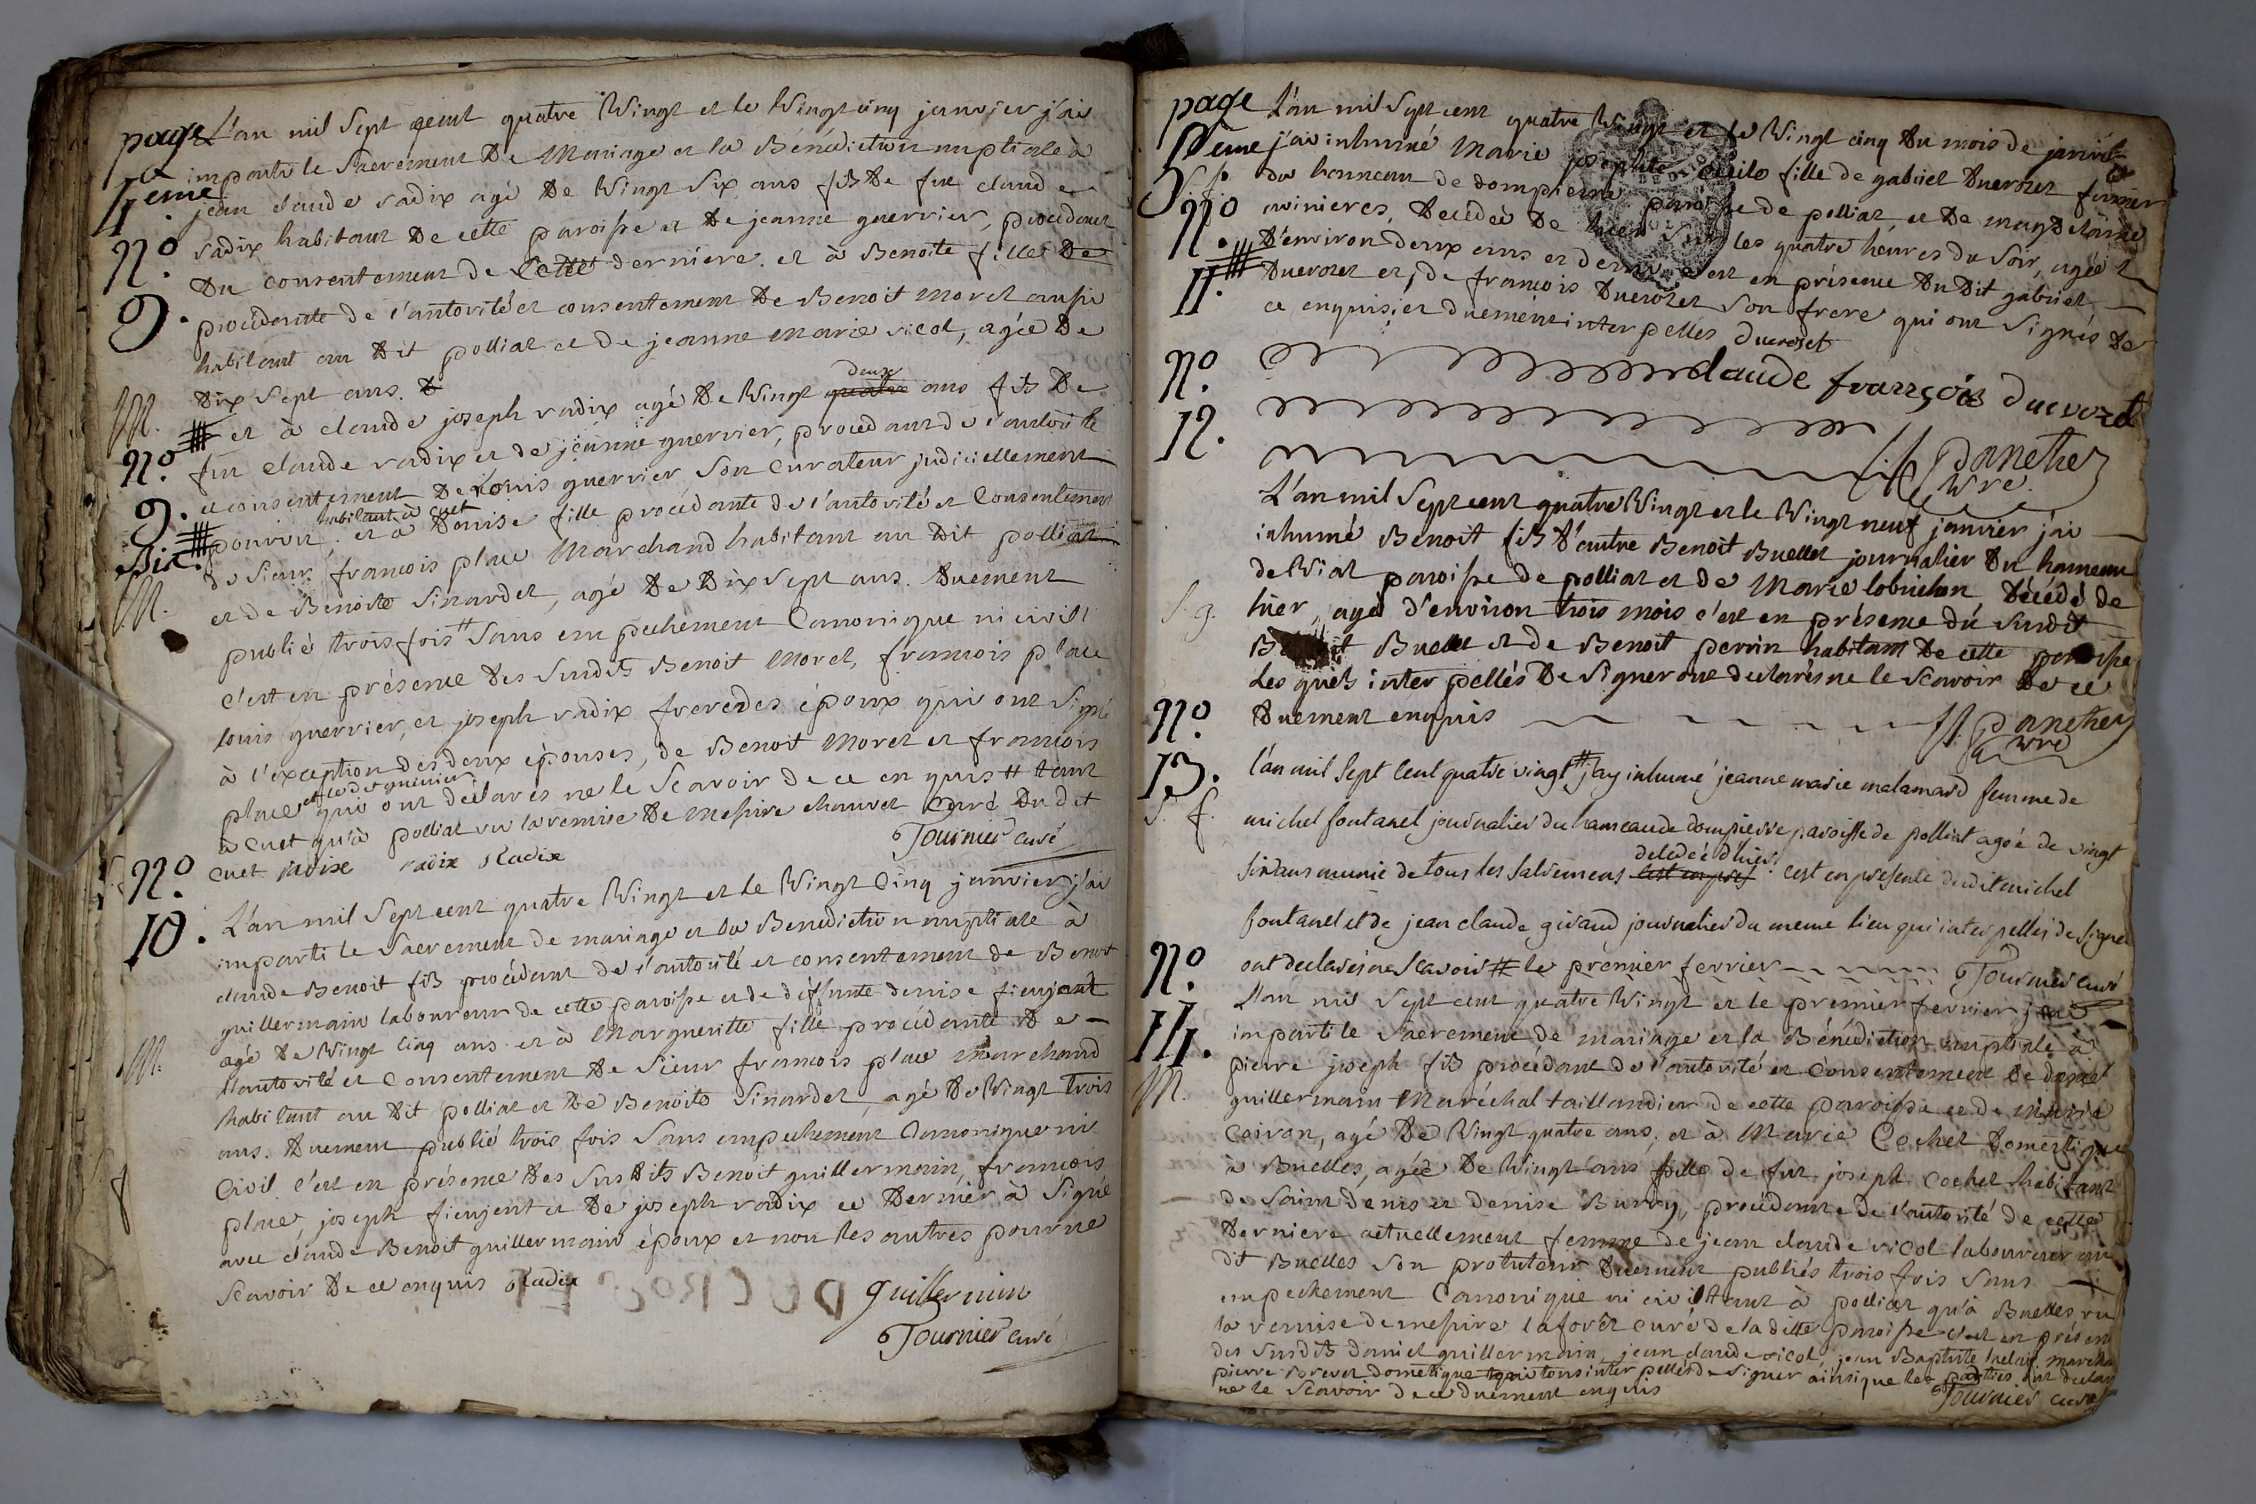 page
4eme
L'an mil sept cent quatre Vingt et le Vingt cinq janvier j'ai
imparti le Sacrement De Mariage et la Bénédiction nuptiale à
jean claude radix agé De Vingt Six ans fils De fut claude
radix habitant De cette paroisse et De jeanne guerrier, procedant
Du consentement de Cette derniere. et à Benoite fille De
procedante de l'autorité et consentement De Benoit Morel aussi
habitant au Dit polliat et De jeanne Marie vicol, agée De
Dix Sept ans. D
deux
et à claude joseph radix agé De Vingt quatre ans fils De
fut claude radix et de jeanne guerrier, procedant de l'autorité
et consentement De Louis guerrier Son Curateur judiciellement
habitant à cuet
pourvu, et à Denise fille procedante de l'autorité et Consentement
de Sieur francois place Marchand habitant au Dit polliat
et de Benoite Sinardet, agé De Dix Sept ans. Duement
publié trois fois # Sans empechement Canonique ni civil
c'est en présence Des Susdits Benoit Morel, francois place
louis guerrier, et joseph radix frere des époux qui ont Signé
à l'exception des deux épouses, de Benoit Morel et francois
et le dit guerrier
place qui ont déclarés ne le Scavoir de ce enquis # tant
à cuet qu'à polliat vu la remise De Messire chauvet Curé Du dit
cuet radix radix Radix Tournier curé
No
9.
M.
No
9.
Bis.
M.
No
10.
L'an mil Sept cent quatre Vingt et le Vingt Cinq janvier j'ai
imparti le Sacrement de mariage et la Benediction nuptiale à
claude Benoit fils procédant de l'autorité et consentement de Benoit
guillermain laboureur de cette paroisse et de deffunte denise fienjent
agé De Vingt Cinq ans et à Margueritte fille procédante De
l'autorité et Consentement De Sieur francois place Marchand
habitant au Dit polliat et De Benoite Sinardet, agé De Vingt trois
ans. Duement publié trois fois Sans empechement Canonique ni
Civil c'est en présence Des Susdits Benoit guillermain, francois
place, joseph fienjent et De joseph radix ce Dernier à Signé
avec claude Benoit guillermain époux et non les autres pour ne
Scavoir De ce enquis Radix
M.
guillermin
Tournier curé
page
5eme
L'an mil Sept cent quatre Vingt et le Vingt cinq Du mois de janvier
j'ai inhumé Marie fille de gabriel Ducrozet fermier
du hameau de dompierre paroisse de polliat et De magdelaine
Decédée De les quatre heures du Soir, agée
D'environ deux ans et demi c'est en présence Du Dit gabriel
Ducrozet et de francois Ducrozet Son frere qui ont Signés De
ce enquis, et duement interpellés Ducroset
claude françois Ducrozet
S. f.
No
11.
No
12.
J. Panethier
Vre.
L'an mil Sept cent quatre Vingt et le Vingt neuf janvier j'ai
inhumé Benoit fils D'autre Benoit Buellet journalier Du hameau
de Viat paroisse de polliat et de Marie lobrichon Décédé De
hier, agé d'environ trois mois c'est en présence du Susdit
Benoit Buellet et de Benoit perrin habitant De cette paroisse
Lesquels interpellés De Signer ont declarés ne le Scavoir De ce
Duement enquis
S. g.
J. Panethier
Vre
No
13.
S. f.
l'an mil Sept Cent quatre vingt # j'ay inhumé jeanne marie malamard femme de
michel fontanel journalier du hameau de dompierre paroisse de polliat agée de vingt
decedeé d'hier
Six ans munie de tous les Sacremens c'est en pres c'est en presence dudit michel
fontanel et de jean claude girand journalier du meme lieu qui interpellés de Signer
ont declarés ne Scavoir # le premier fevrier Tournier curé
No
14.
M.
L'an mil Sept cent quatre Vingt et le premier fevrier j'ai
imparti le Sacrement de mariage et la Bénédiction nuptiale à
pierre joseph fils procédant de l'autorité et Consentement De daniel
guillermain Maréchal taillandier de cette paroisse et de Marie
Coiron, agé De Vingt quatre ans, et à Marie Cochet Domestique
à Buelles, agée De Vingt ans fille de fut joseph Cochet habitant
de Saint denis et denise Burry, procédante de l'autorité de cette
Derniere actuellement femme de jean claude vicol laboureur au
dit Buelles Son protuteur Duement publiés trois fois Sans
empechement Canonique ni civil tant à polliat qu'à Buelles vu
la remise de messire laforêt curé de la ditte paroisse c'est en présence
des Susdits daniel guillermain, jean claude vicol, jean Baptiste
pierre Brevet domestique tous interpellés de Signer ainsi que les parties ont declaré
ne le Scavoir de ce duement enquis Tournier curé